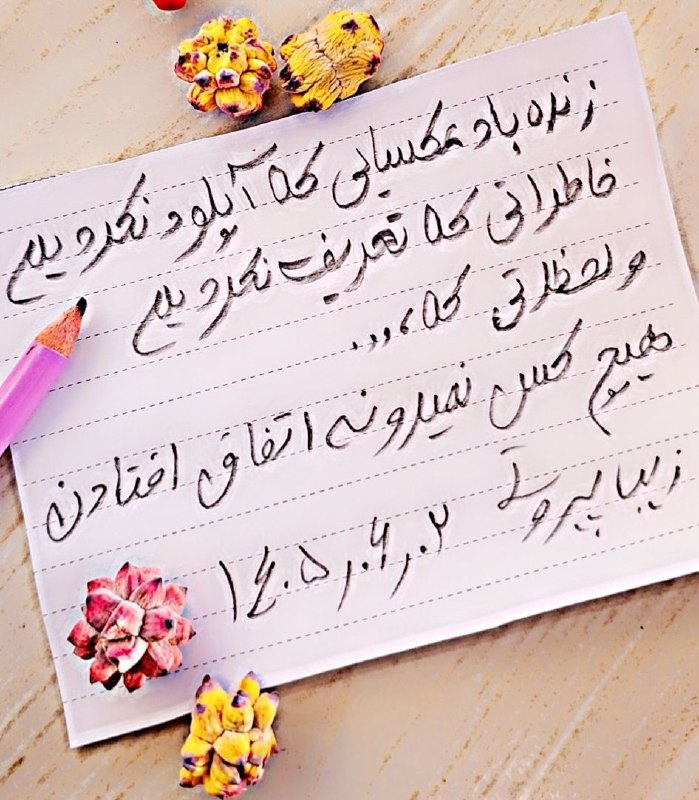 زنده باد عکسایی که آپلود نکردیم
خاطراتی که تعریف نکردیم
و لحظاتی که،...
هیچ کس نمیدونه اتفاق افتادن
زیبا پیروتی ۱۴۰۵٫۰۶٫۰۲